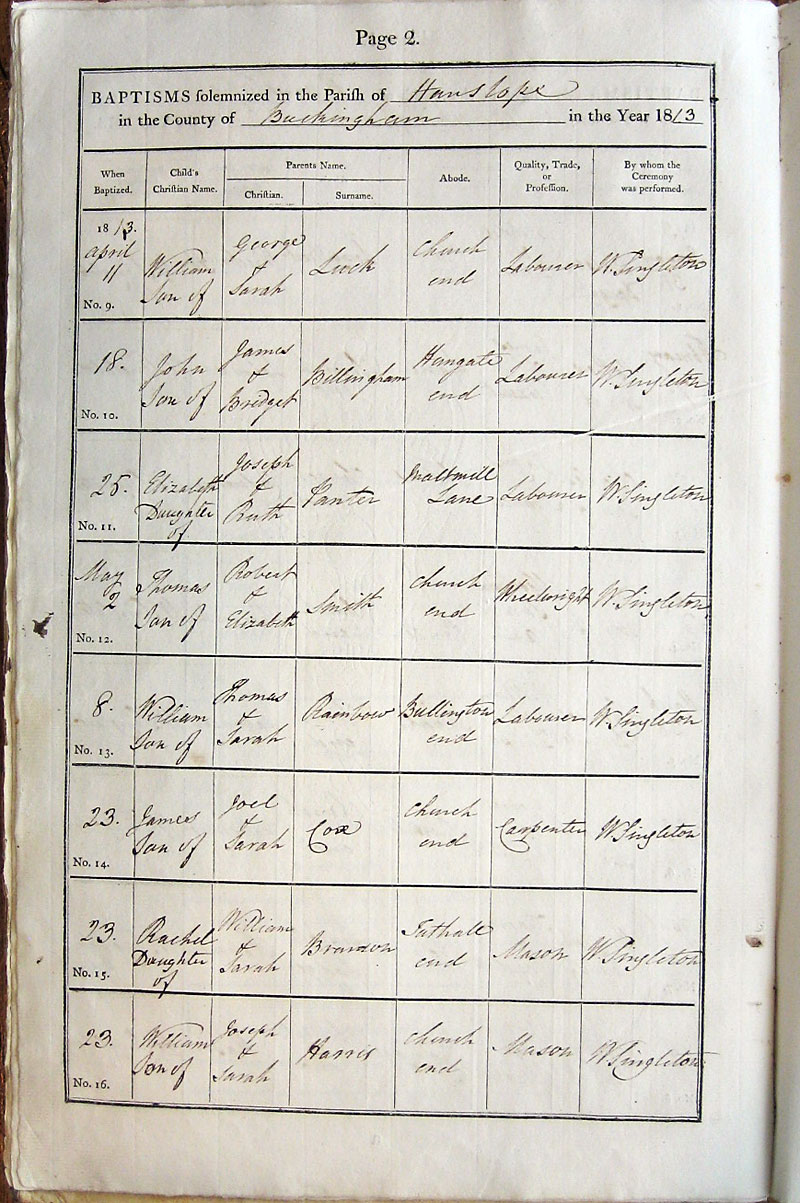 Page 2.
BAPTISMS solemnized in the Parish of Hanslope
in the County of Buckingham in the Year 1813
When Baptized. Child's Christian Name. Parents Name. Christian. Surname. Abode. Quality, Trade, or Profession. By whom the Ceremony was performed.
1813.
April 11 William Son of George & Sarah Church end Labourer W. Singleton
No. 9.
18. John Son of James & Bridget Billingham Hungate end Labourer W. Singleton
No. 10.
25. Elizabeth Daughter of Joseph & Ruth Panter Maltmill Lane Labourer W Singleton
No. 11.
May 2 Thomas Son of Robert & Elizabeth Smith Church end Wheelwright W. Singleton
No. 12.
8. William Son of Thomas & Sarah Rainbow Bullington end Labourer W Singleton
No. 13.
23. James Son of Joel & Sarah Cox Church end Carpenter W Singleton
No. 14.
23. Rachel Daughter of William & Sarah Tathall end Mason W Singleton
No. 15.
23. William Son of Joseph & Sarah Harris Church end Mason W Singleton
No. 16.